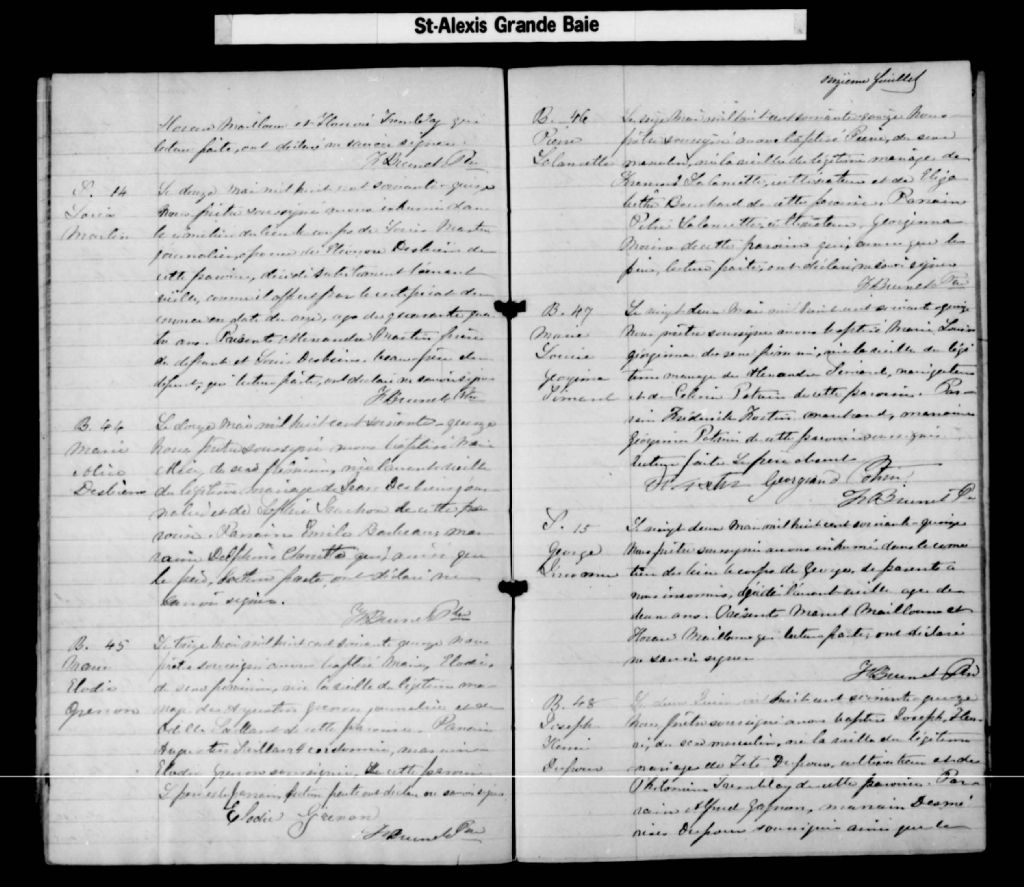 St-Alexis Grande Baie
Horace Mailloux et Honoré Tremblay qui
lecture faite, ont déclaré ne savoir signer.
Ptre
S. 14
Louis
Martin
Le douze Mai mil huit cent soixante-quinze
nous prêtre soussigné avons inhumé dans
le cimetière du lieu le corps de Louis Martin
journalier, époux de Eléonore Desbiens de
cette paroisse, décédé subitement l'avant
veille, comme il appert par le certificat du
coroner en date du onze, agé de quarante qua
tre ans. Présents Alexandre Martin frère
du défunt et Louis Desbiens beau-père du
défunt, qui lecture faite, ont déclaré ne savoir signer
Ptre
B. 44
Marie
Alice
Desbiens
Le douze Mai mil huit cent soixante-quinze
nous prêtre soussigné avons baptisé Marie
Alice, du sexe féminin, née l'avant veille
du légitime mariage de Jean Desbiens jour
nalier et de de cette pa
roisse. Parrain Emile Barbeau, mar
raine Delphine qui, ainsi que
le père, lecture faite ont déclaré ne
savoir signer.
Ptre
B. 45
Marie
Elodie
Grenon
Le treize Mai mil huit cent soixante quinze nous
prêtre soussigné avons baptisé Marie, Elodie,
du sexe féminin, née la veille du légitime ma
riage de Augustin Grenon journalier et de
Gaillard de cette paroisse. Parrain
Augustin Gaillard marraine
Elodie Grenon soussignée, de cette paroisse
Le père et le parrain, lecture faite ont déclaré ne savoir signer
Elodie Grenon
Ptre
onzième feuillet
B. 46
Pierre
Lalancette
Le seize Mai mil huit cent soixante quinze Nous
prêtre soussigné avons baptisé Pierre, du sexe
masculin, né la veille du légitime mariage de
Lalancette, cultivateur et de Eliza
beth Bouchard de cette paroisse. Parrain
Lalancette, cultivateur, Georgina
de cette paroisse qui, ainsi que le
père, lecture faite, ont déclaré ne savoir signer
Ptre
B. 47
Marie
Louise
Georgina
Simard
Le vingt deux Mai mil huit cent soixante quinze
Nous prêtre soussigné avons baptisé Marie Louise
Georgina du sexe féminin, née la veille du légi
time mariage de Alexandre Simard, navigateur
et de Célina Potvin de cette paroisse. Par
rain Frédérick Fortin marchand, marraine
Georgina Potvin de cette paroisse soussignés
lecture faite. Le père absent
Georgiana Potvin
Ptre
S. 15
George
Inconnu
Le vingt deux Mai mil huit cent soixante quinze
Nous prêtre soussigné avons inhumé dans le cime
tière du lieu le corps de George, de parents à
nous inconnus, décédé l'avant veille agé de
deux ans. Présents Mailloux et
Horace Mailloux qui lecture faite, ont déclaré
ne savoir signer
Ptre
B. 48
Joseph
Henri
Dufour
Le deux Juin mil huit cent soixante quinze
Nous prêtre soussigné avons baptisé Joseph, Hen
ri, du sexe masculin, né la veille du légitime
mariage de Dufour, cultivateur et de
Philomène Tremblay de cette paroisse. Par
rain Alfred Gagnon, marraine
Dufour soussignés ainsi que le